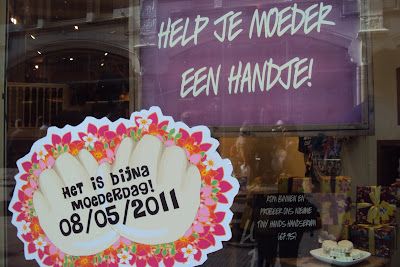 HELP JE MOEDER
EEN HANDJE!
HET IS BIJNA
MOEDERDAG!
08/05/2011
KOM BINNEN EN
PROBEER ONS NIEUWE
TINY HANDS HANDSERUM